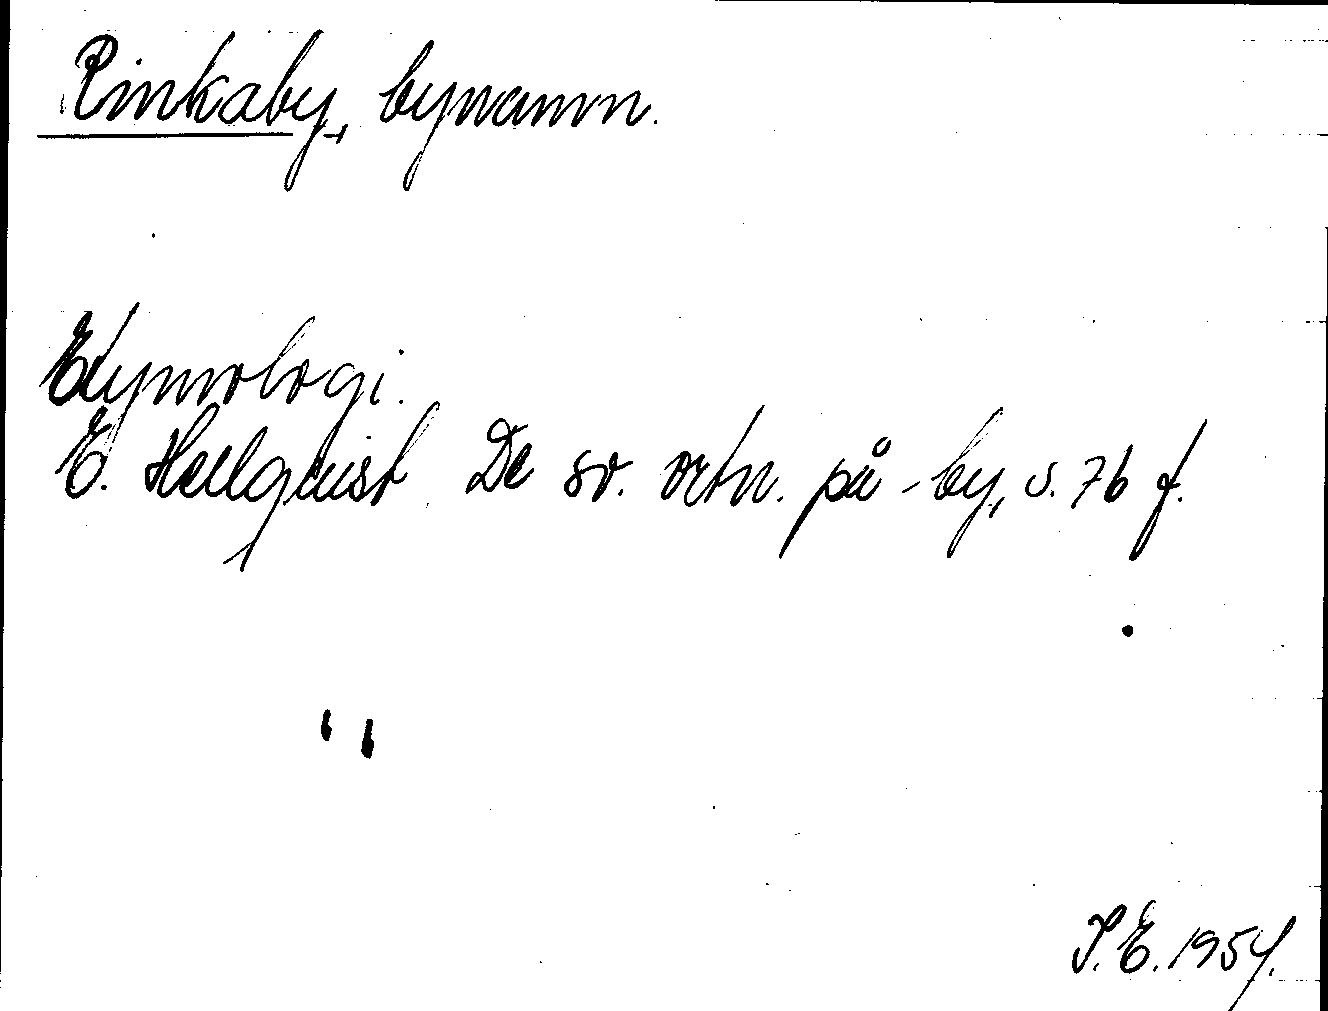 Rinkaby, bynamn.
Etymologi.
E. Hellquist De sv. ortn. på -by, s. 76 f.
S.E. 1954.